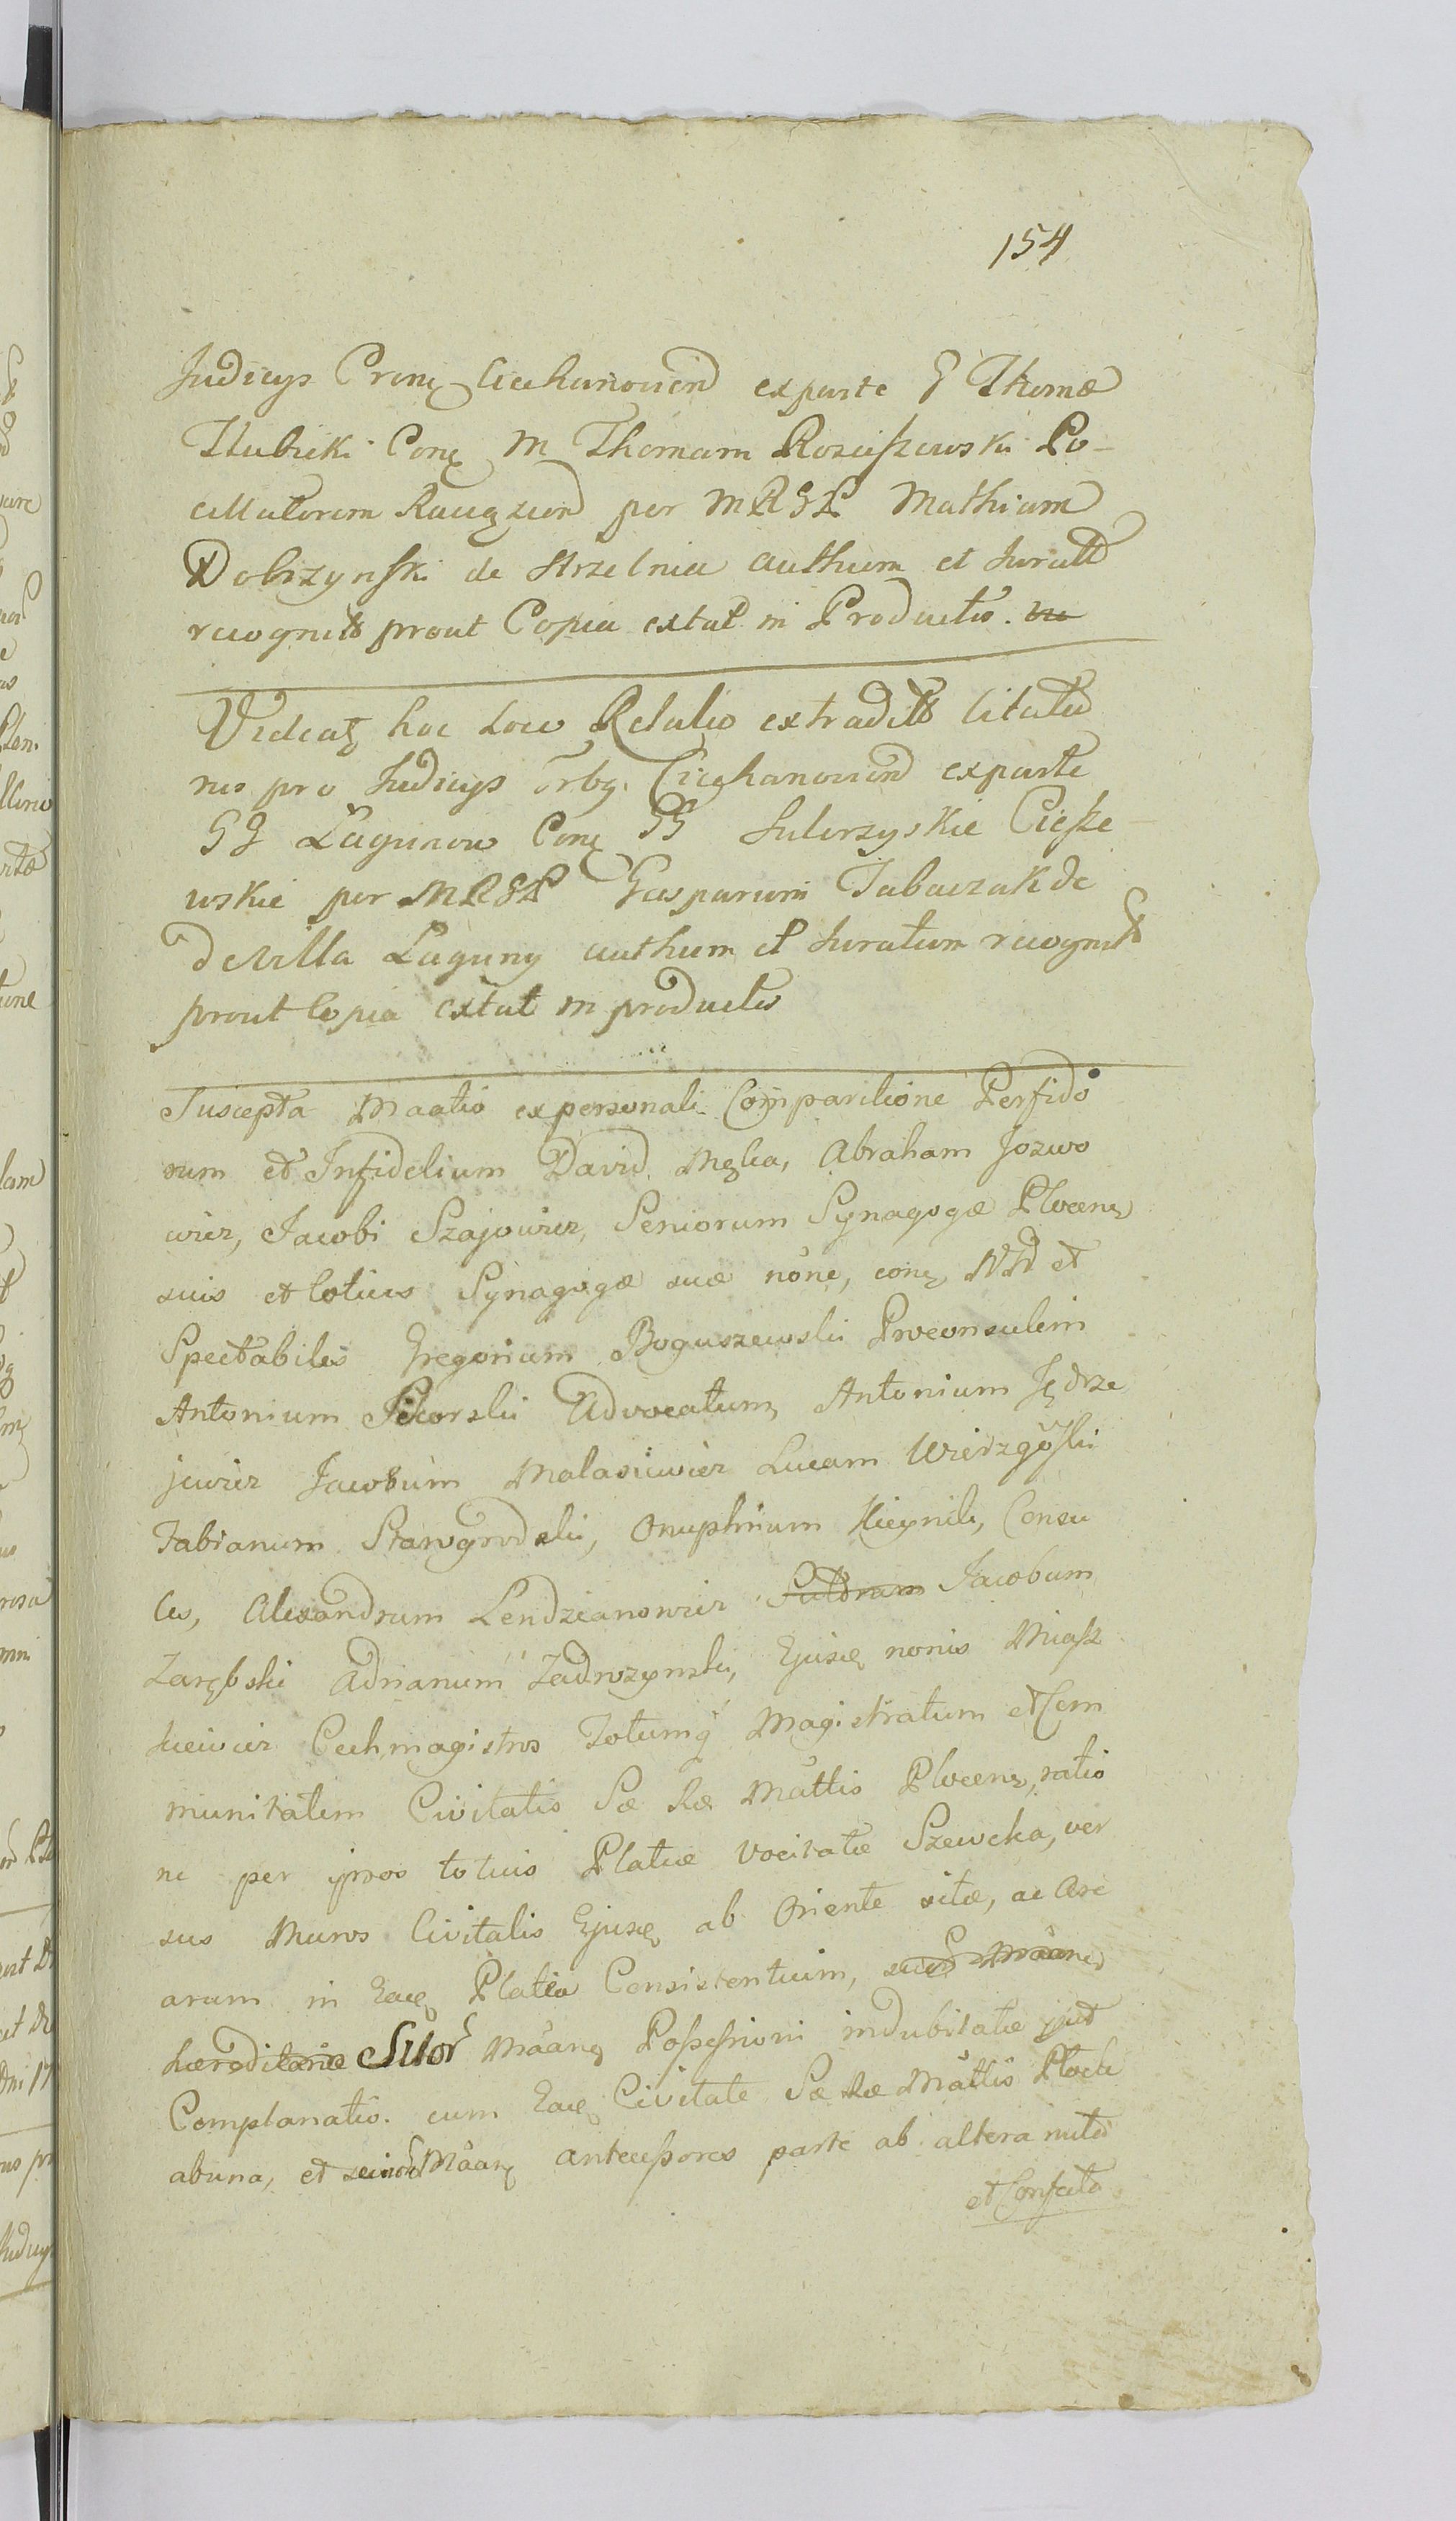 154
Judicys Crone Ciechanovien exparte G Thomæ
Hubicki Conę M Thomam Rosciszewski Po-
cillatorem Raciązien per MRGR Mathiam
Dobrzynski de Strzelnia authum et Juratt
recognit prout Copia extat in Productis.
Videatz hoc Loco Relatio extradit Citatio
nis pro Judicys Crone Ciechanovien exparte
GG Łagunow Conę GG Sulerzyskie Ciesze
wskie per MRGR Gasparum Tabaczak de
de Villa Łaguny authum et Juratum recognit
prout Copia extat in productis
Suscepta Maãtio ex personali Comparitione Perfido
rum et Infidelium David Abraham Jozwo
wicz, Jacobi Szajowicz, Seniorum Synagogæ Plocens
suis et totius Synagogæ suæ nõne, conę NN et
Spectabiles Gregorium Boguszewski Proconsulem
Antonium Sikorski Advocatum, Antonium Jędrze
jewicz Jacobum Malasiewicz Lucam Wierzgoski
Fabianum Starogrodzki, Onuphrium Consu
les, Alexandrum Lendzianowicz Jacobum
Zarębski Adrianum Zadrozynski, Ejusdę nonis Miasz
kiewicz Cechmagistros Totumq Magistratum et Com
munitatem Civitatis Sæ Ræ Mattis Plocens, ratio
ne per ipsos totius Platæ vocitatæ Szewcka, ver
sus Muros Civitatis Ejusdę ab Oriente sitæ, ac are
arum in Eadę Platea Consistentium,
hæreditariæ Suor Maãnę Possessioni indubitatæ
Complanatio. cum Eadę Civitate Sæ Ræ Mattis Plock
abuna, et Maãnę antecessores parte ab altera inita
et Confecta